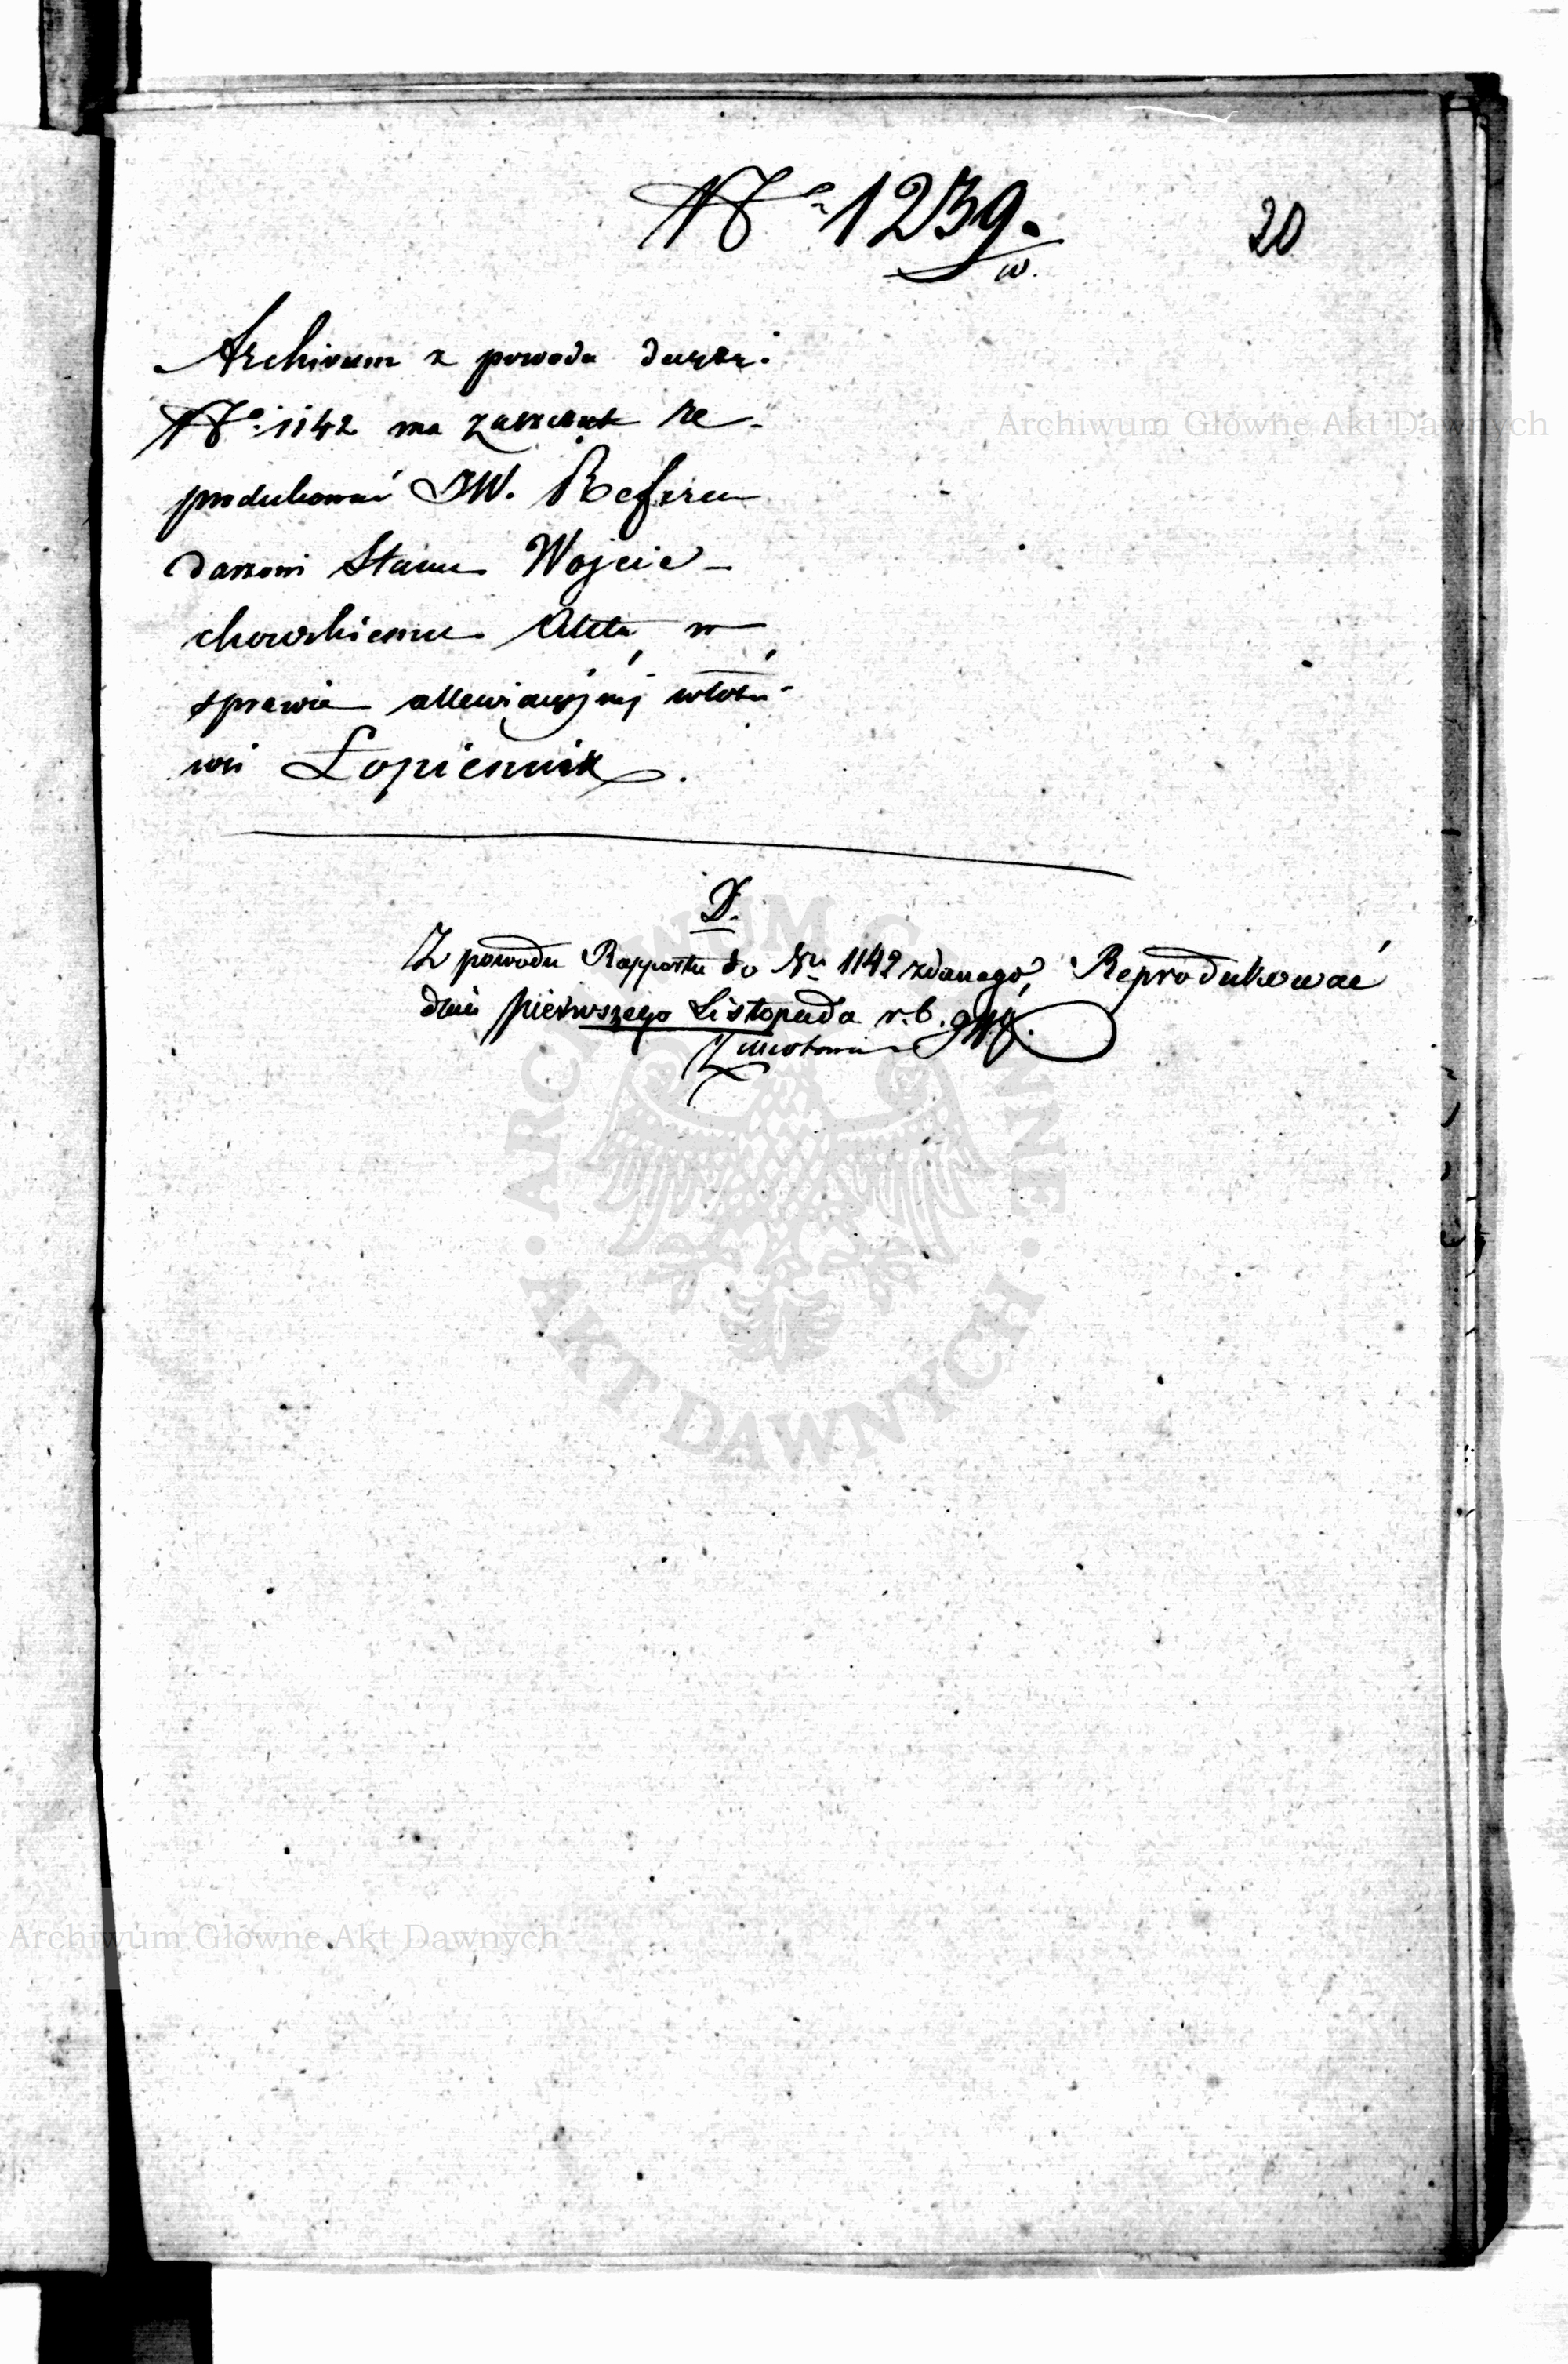 No 1239.
w.
20
Archivum z powodu decyzi
No 1142 ma zaszczyt re-
produkować JW. Referen
darzowi Stanu Wojcie-
chowskiemu Akta w
sprawie allewiacyjnéj włośa-
wsi Łopiennik.
D.
Z powodu Rapportu do Nru 1142 zdanego, Reprodukować
dnia pierwszego Listopada r. b.
Archiwum Główne Akt Dawnych
ARCHIWUM GŁÓWNE
AKT DAWNYCH
Archiwum Główne Akt Dawnych